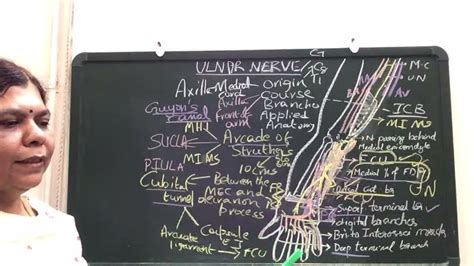 ULNAR NERVE
G
C8
Axilla-Medial
Origin
Course
Axilla
Branches
front of
arm
Applied
Anatomy
Guyon's
Canal
MHI
Arcade of
Struthers
SUCLA
MIMS
10 cms
PIULA
Cubital
tunnel
Between the
MEC and
olecranon
process
Capsule
EJ
Arcuate
ligament
FCU
M.C
UN
AV
ICB
MIMS
N passing behind
Medial epicondyle
FCU
Medial ½ of FDP
UN
FCU
Superf. terminal br
digital branches
Brs to Interossei muscles
Deep terminal branch